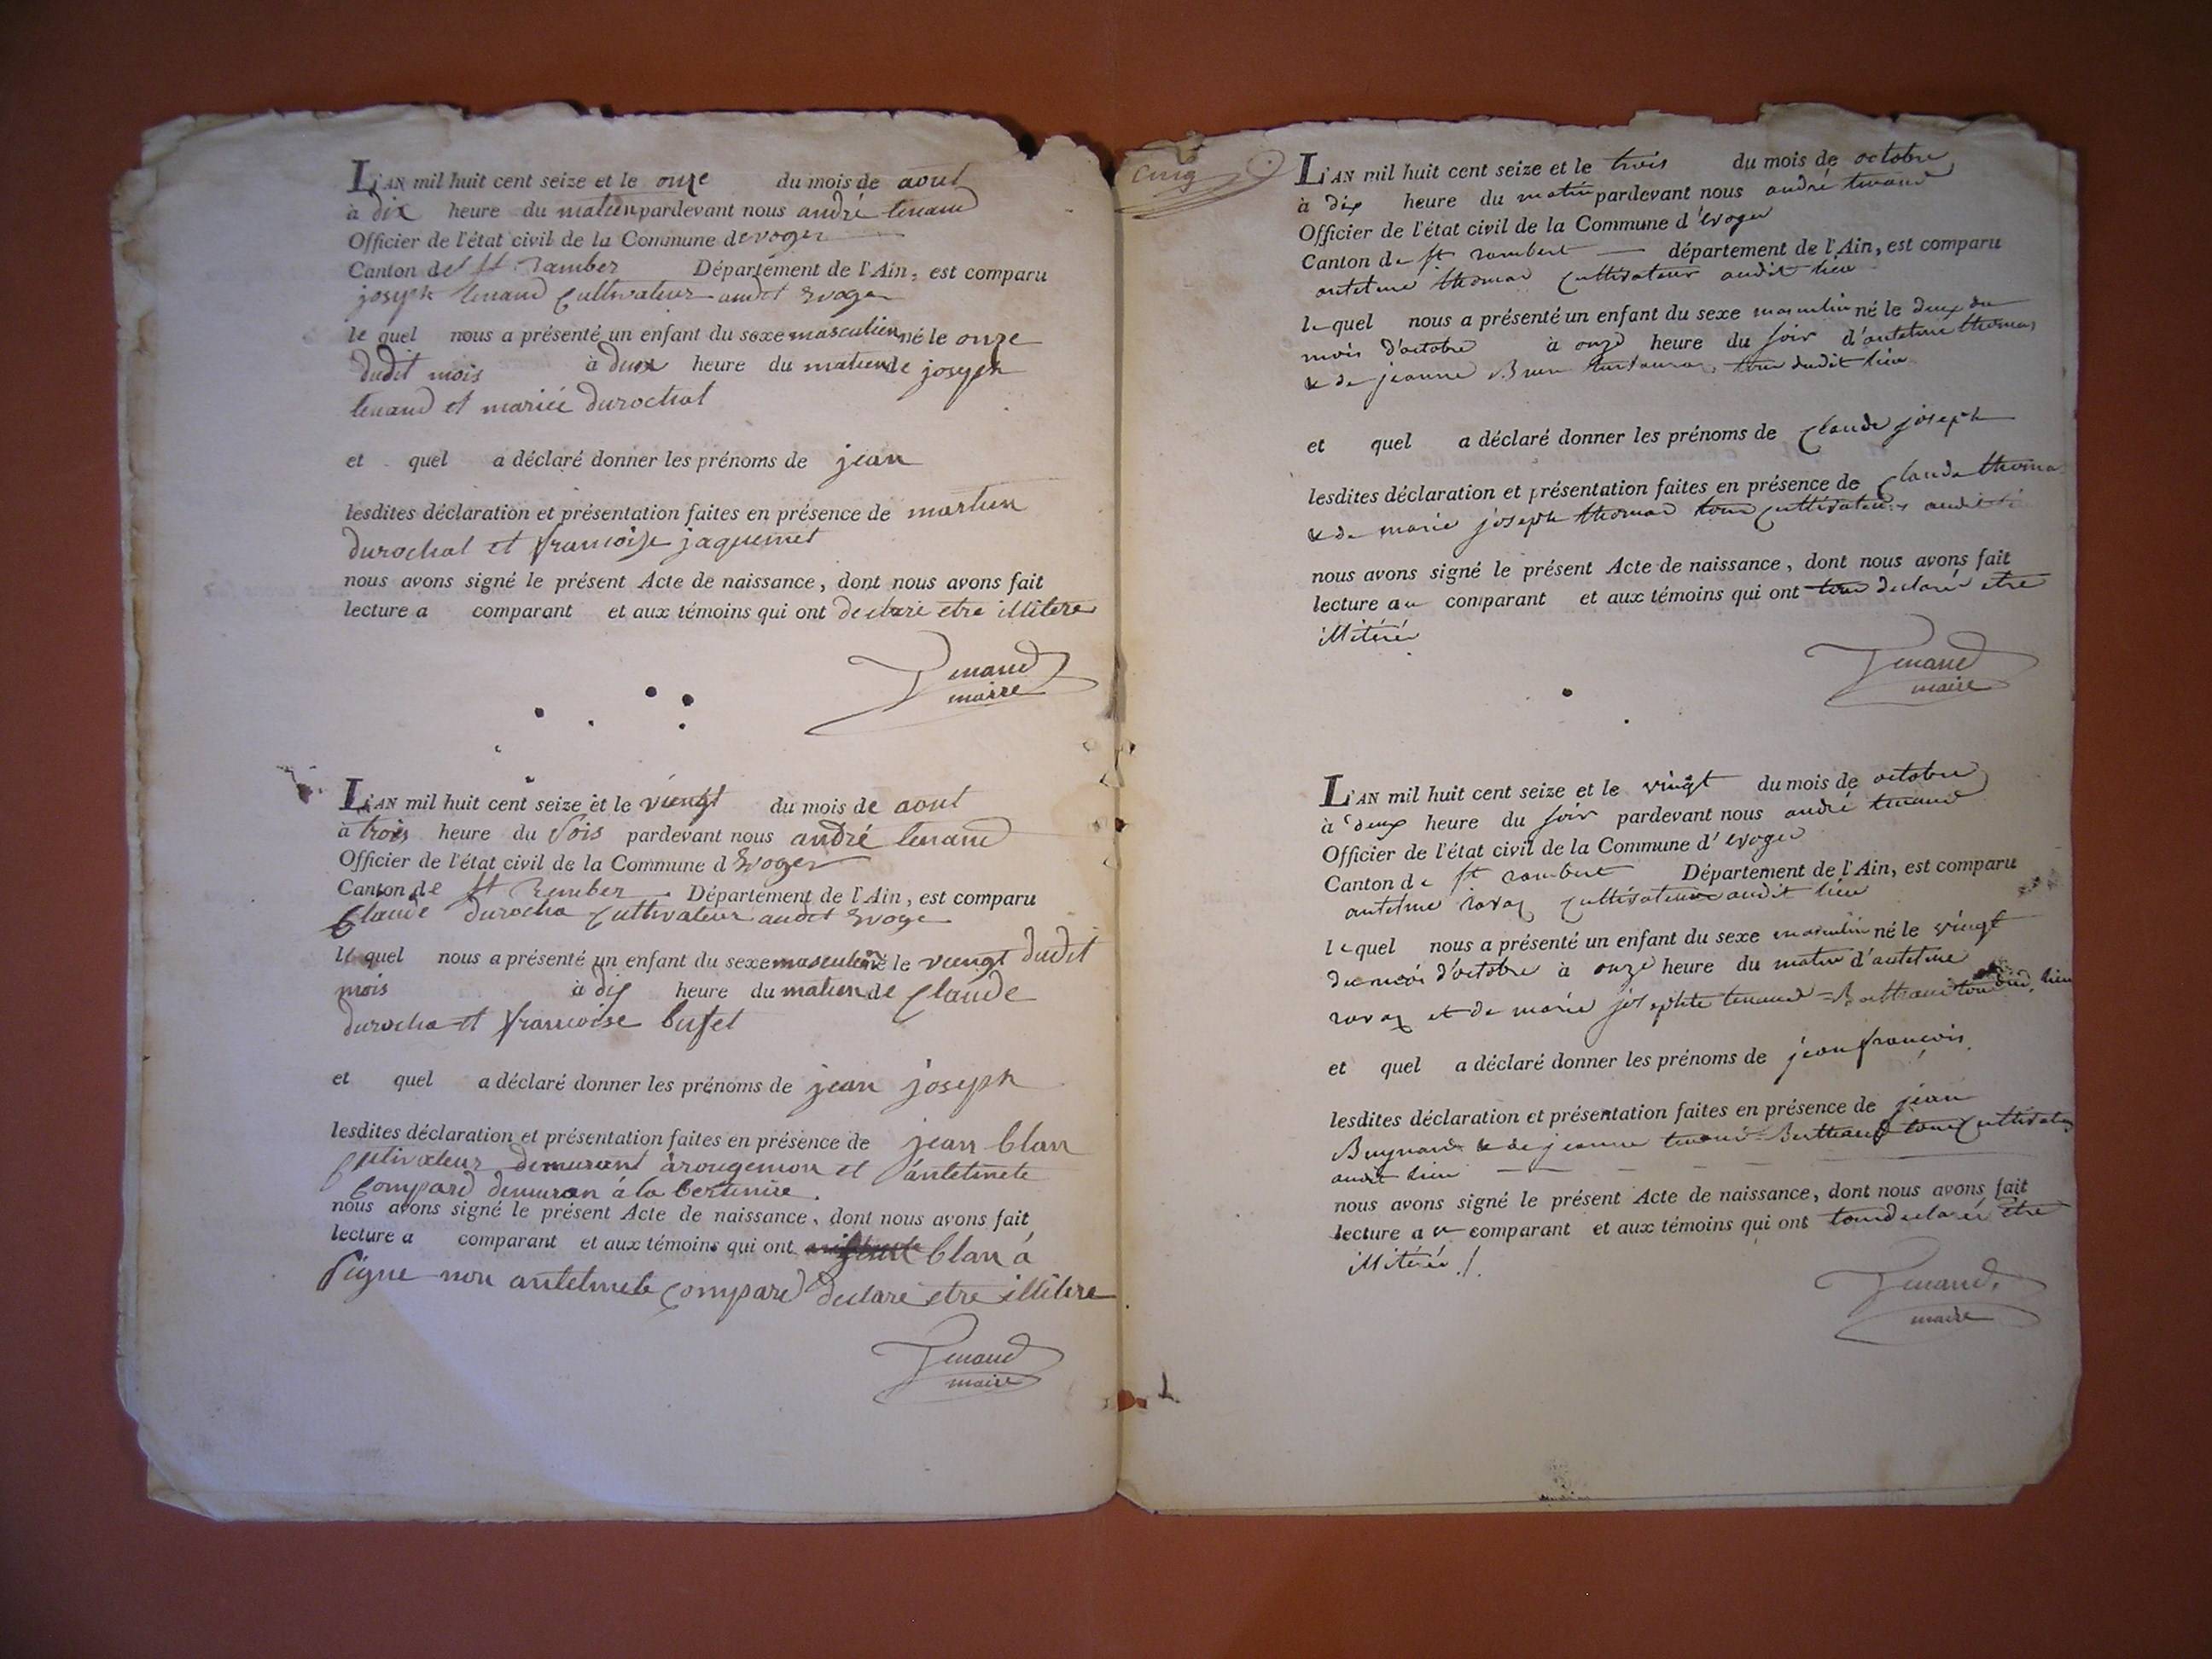 L'AN mil huit cent seize et le onze du mois de aout
à dix heure du matien pardevant nous andré tenand
Officier de l'état civil de la Commune devoger
Canton de st ramber Département de l'Ain, est comparu
joseph tenand cultivateur audit Evoger
le quel nous a présenté un enfant du sexe masculien né le onze
dudit mois à deux heure du matien de joseph
tenand et mariée durochat
et quel a déclaré donner les prénoms de jean
lesdites déclaration et présentation faites en présence de martien
durochat et francoise jaquemet
nous avons signé le présent Acte de naissance, dont nous avons fait
lecture a comparant et aux témoins qui ont declaré etre illitere
Tenand
maire
L'AN mil huit cent seize et le viengt du mois de aout
à trois heure du Sois pardevant nous andré tenand
Officier de l'état civil de la Commune d Evoger
Canton de st Rember Département de l'Ain, est comparu
Claude durocha cultivateur audit Evoge
le quel nous a présenté un enfant du sexe masculien né le viengt dudit
mois à dix heure du matien de Claude
durocha et francoise bufet
et quel a déclaré donner les prénoms de jean joseph
lesdites déclaration et présentation faites en présence de jean blan
cultivateur demurant à rougemon et antelmete
compard demuran à la
nous avons signé le présent Acte de naissance, dont nous avons fait
lecture a comparant et aux témoins qui ont blan a
signe non antelmete compard declare etre illitere
Tenand
maire
Cinq
L'AN mil huit cent seize et le trois du mois de octobre
à dix heure du matin pardevant nous andré tenand
Officier de l'état civil de la Commune d'evoger
Canton de st rambert département de l'Ain, est comparu
antelme thomas cultivateur audit lieu
le quel nous a présenté un enfant du sexe masculin né le deux du
mois d'octobre à onze heure du soir d'antelme thomas
& de jeanne Brun tous dudit lieu
et quel a déclaré donner les prénoms de Claude joseph
lesdites déclaration et présentation faites en présence de Claude thomas
& de marie joseph thomas tous cultivateurs audit
nous avons signé le présent Acte de naissance, dont nous avons fait
lecture au comparant et aux témoins qui ont tous declaré etre
illitéré
Tenand
maire
L'AN mil huit cent seize et le vingt du mois de octobre
à deux heure du soir pardevant nous andré tenand
Officier de l'état civil de la Commune d'evoger
Canton de st rambert Département de l'Ain, est comparu
antelme ravaz cultivateur audit lieu
le quel nous a présenté un enfant du sexe masculin né le vingt
du mois d'octobre à onze heure du matin d'antelme
ravaz et de marie josephte tenand = tous dud. lieu
et quel a déclaré donner les prénoms de jean françois
lesdites déclaration et présentation faites en présence de jean
Buynand & de jeanne tenand = Bertheaud tous cultivateurs
audit lieu
nous avons signé le présent Acte de naissance, dont nous avons fait
lecture au comparant et aux témoins qui ont tous declaré etre
illitéré
Tenand
maire